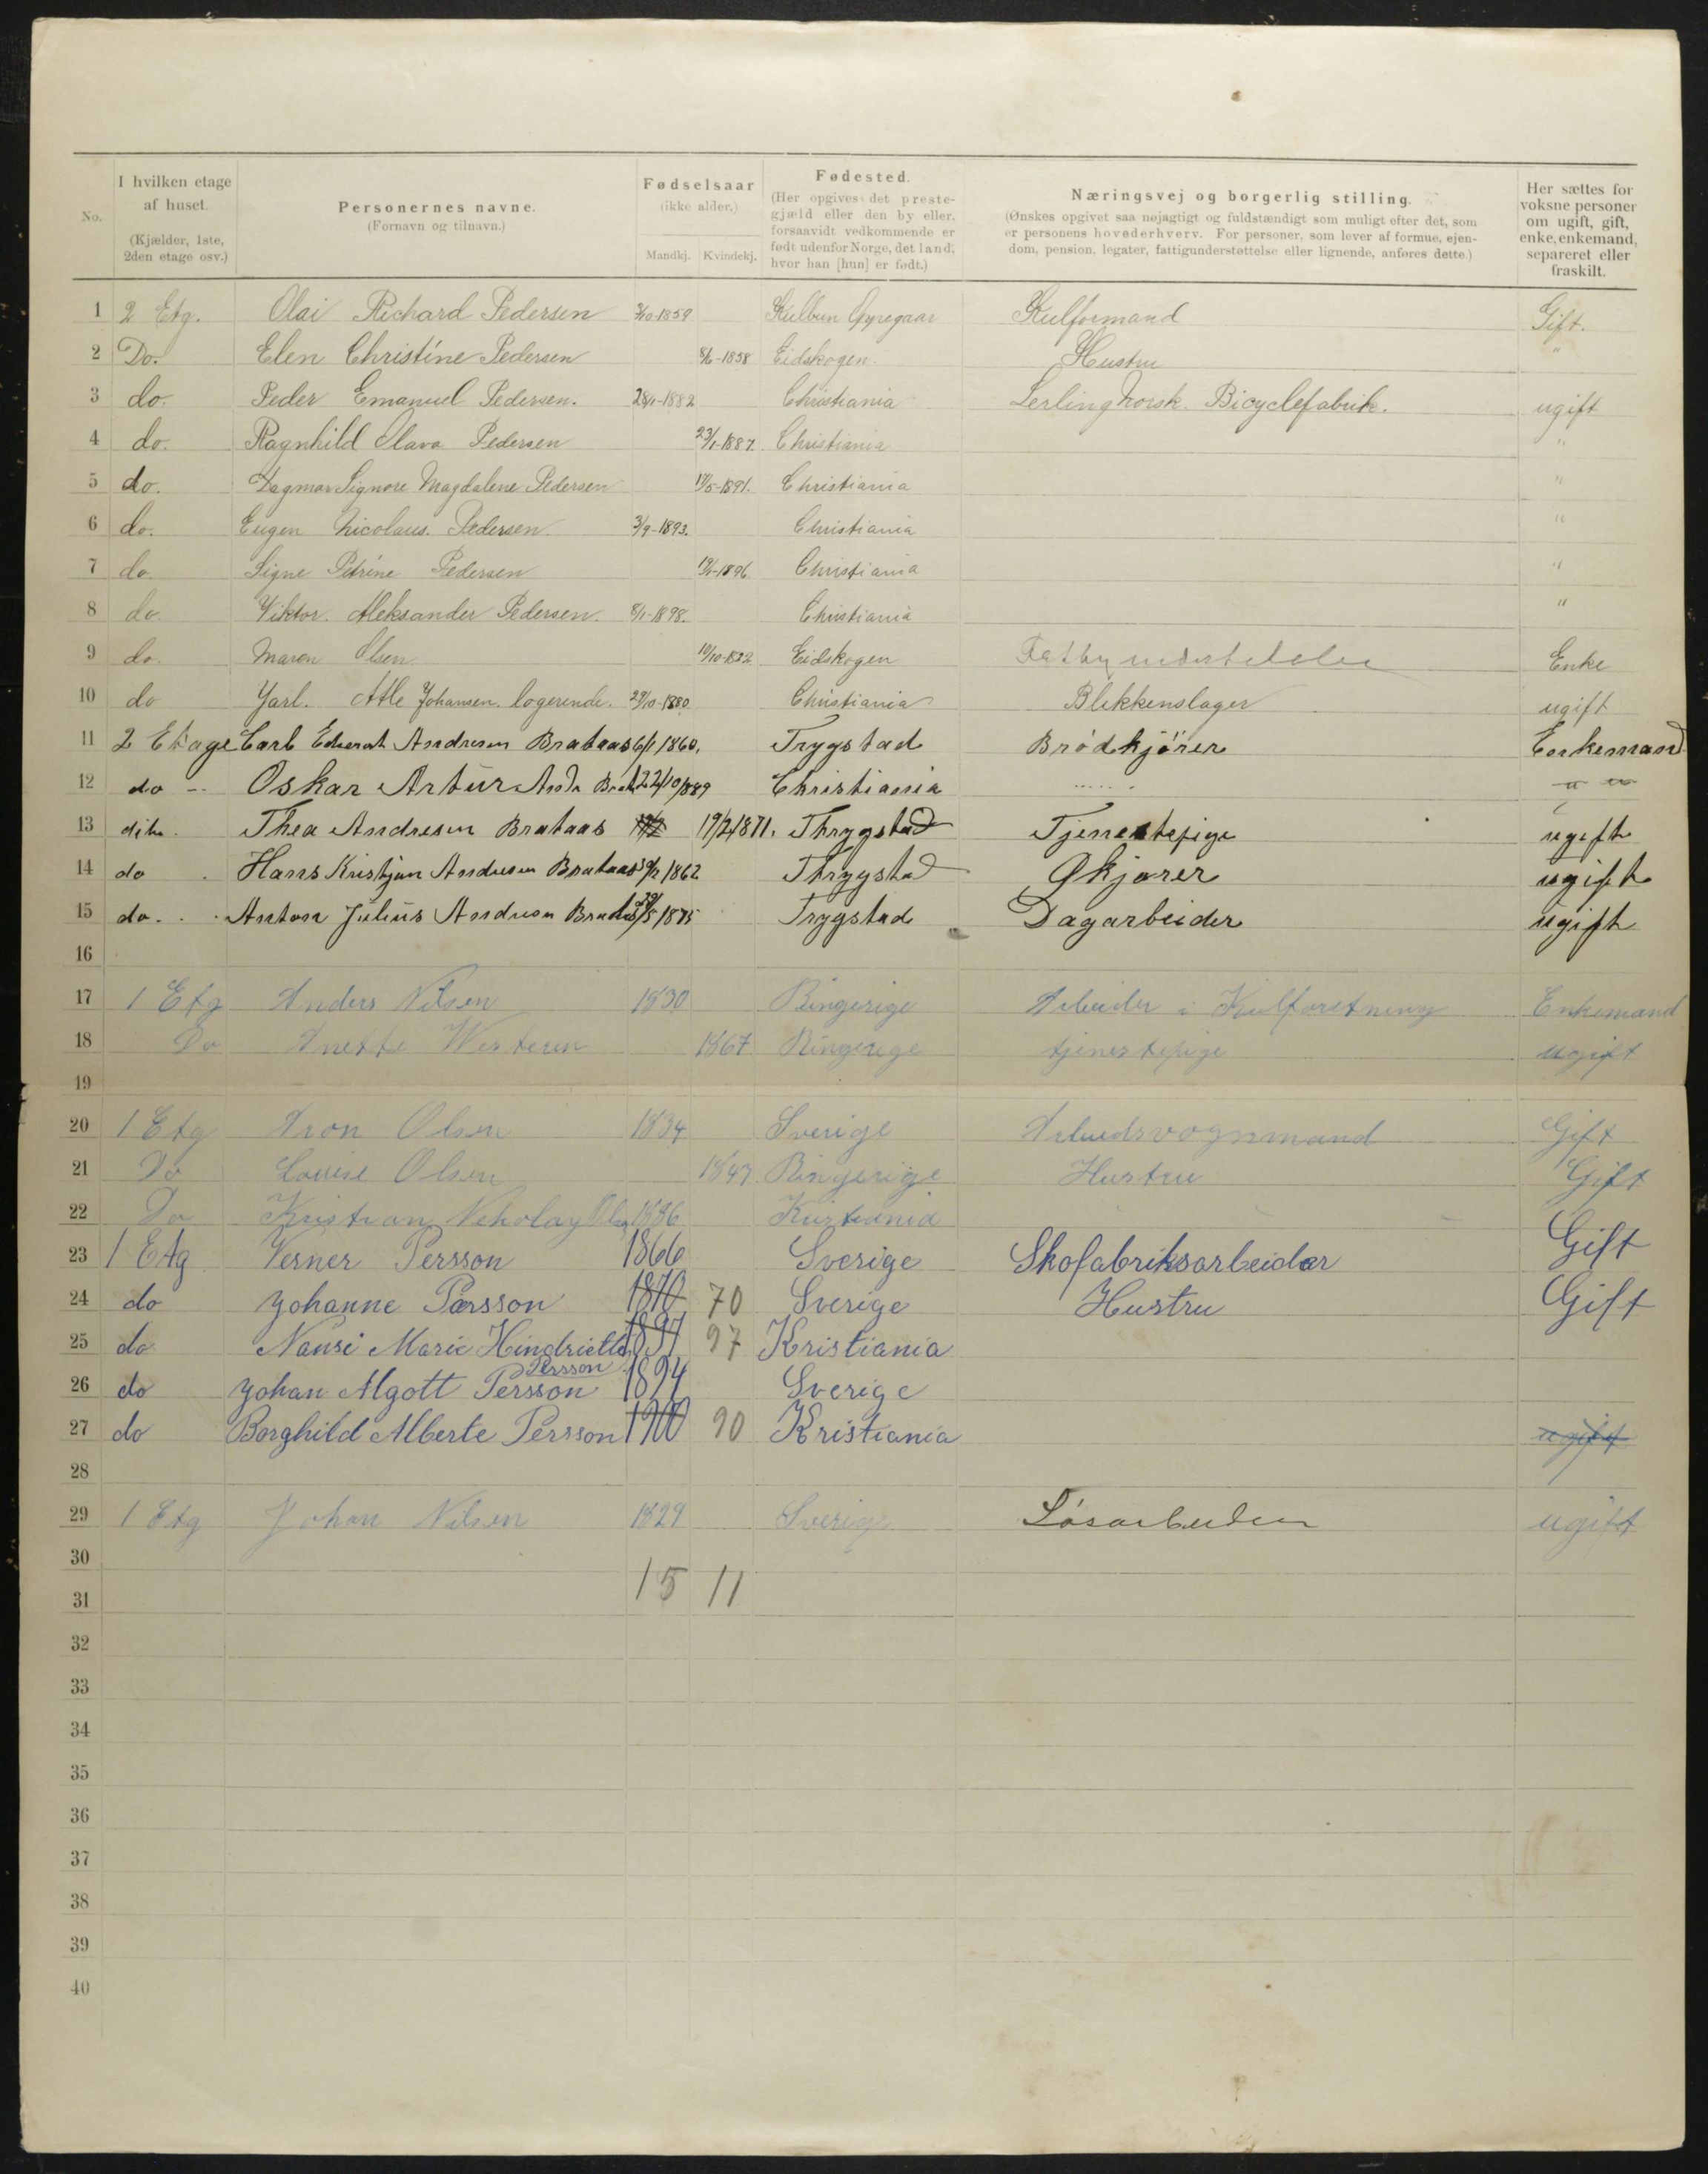 No.
I hvilken etage af huset. (Kjælder, 1ste, 2den etage osv.)
Personernes navne. (Fornavn og tilnavn.)
Fødselsaar (ikke alder.) Mandkj. Kvindekj.
Fødested. (Her opgives det prestegjæld eller den by eller, forsaavidt vedkommende er født udenfor Norge, det land, hvor han [hun] er født.)
Næringsvej og borgerlig stilling. (Ønskes opgivet saa nøjagtigt og fuldstændigt som muligt efter det, som er personens hovederhverv. For personer, som lever af formue, ejendom, pension, legater, fattigunderstøttelse eller lignende, anføres dette.)
Her sættes for voksne personer om ugift, gift, enke, enkemand, separeret eller fraskilt.
1 2 Etg. Olai Richard Pedersen 1859 Gift.
2 Do. Elen Christine Pedersen 8/6-1858 Eidskogen. Hustru "
3 do. Peder Emanuel Pedersen. 1882 Christiania Norsk. Bicyclefabrik. ugift
4 do. Ragnhild Olava Pedersen 23/1-1887. Christiania "
5 do. Dagmar Signore Magdalene Pedersen /5-1891. Christiania "
6 do. Eugen Nicolaus. Pedersen. 3/9-1893. Christiania "
7 do. Signe Petrine Pedersen 1896 Christiania "
8 do. Viktor. Aleksander Pedersen. 8/1-1898. Christiania "
9 do. Maren Olsen Eidskogen Enke
10 do Jarl. Atle Johansen. logerende. 29/10-1880 Christiania Blekkenslager ugift
11 2 Etage Carl Andresen Brataas 6/1 1860. Trygstad Brödkjörer Enkemand
12 do -- Oskar Artur 22/10 1889 Christiania " "
13 dito. Thea Andresen Brataas 19/2 1871. Thrygstad Tjenestepige ugift
14 do . Hans Kristjan Andresen Brataas 1862 Thrygstad ugift
15 do. . . Anton Julius Andresen 1875 Trygstad Dagarbeider ugift
16
17 1 Etg Anders Nilsen 1830 Ringerige Arbeider i Kulforetning Enkemand
18 Do Anette Westeren 1867 Ringerige tjenestepige ugift
19
20 1 Etg Aron Olsen 1834 Sverige Arbeidsvognmand Gift
21 Do Louise Olsen 1847 Ringerige Hustru Gift
22 Do Kristian Nikolay Olsen 1886 Kristiania
23 1 Etg Verner Persson 1866 Sverige Skofabriksarbeider Gift
24 do Johanne Persson 1870 70 Sverige Hustru Gift
25 do Nansi Marie Hindriette Persson 1897 97 Kristiania
26 do Johan Algott Persson 1894 Sverige
27 do Borghild Alberte Persson 1900 90 Kristiania ugift
28
29 1 Etg Johan Nilsen 1829 Sverige Løsarbeider ugift
30
15 11
31
32
33
34
35
36
37
38
39
40